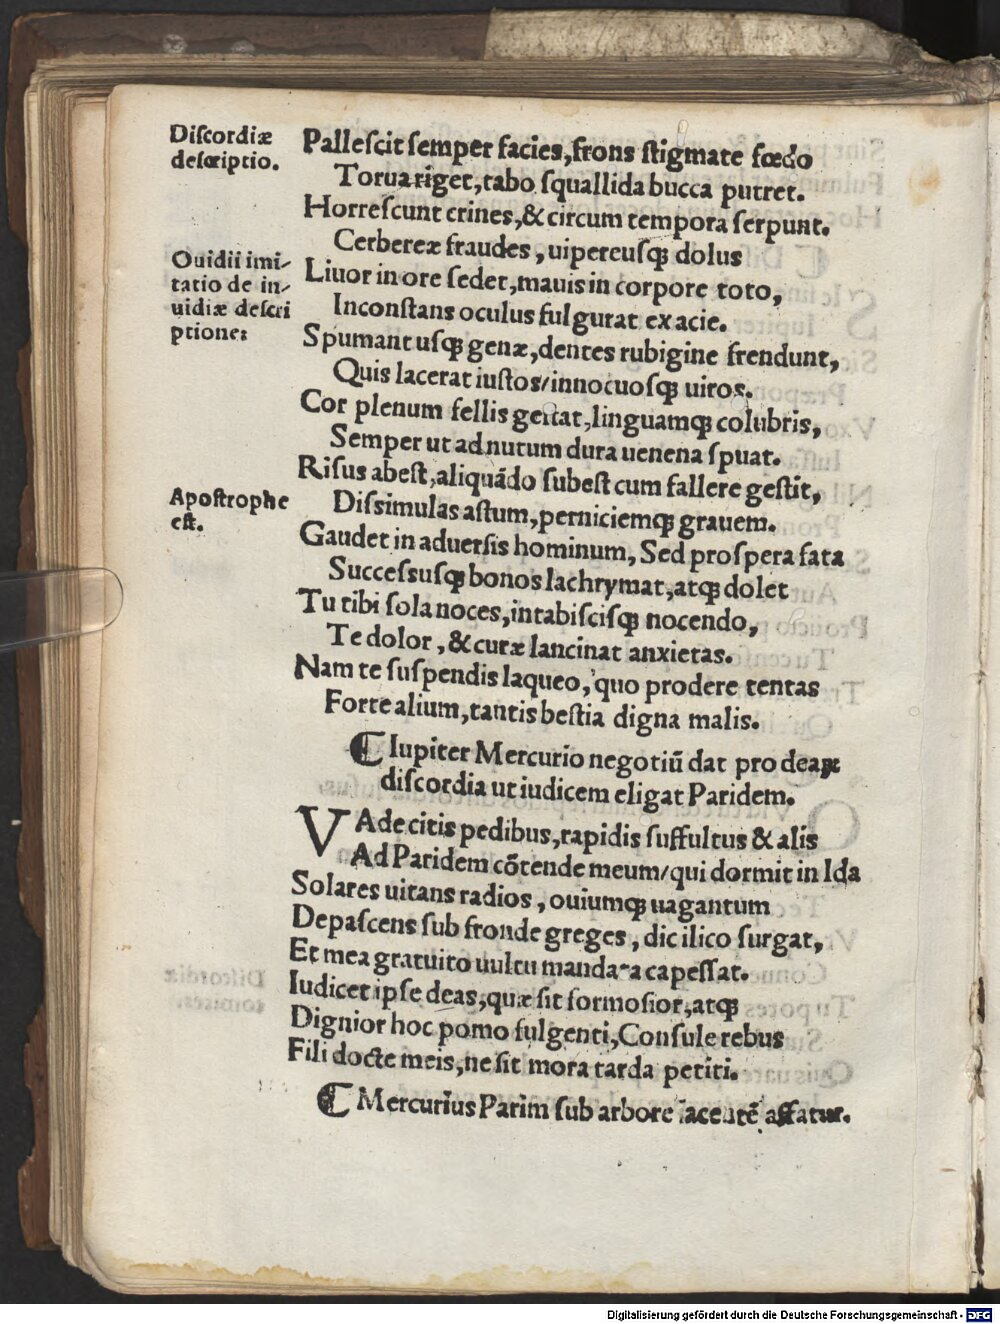 Discordiæ
descriptio.
Pallescit semper facies, frons stigmate fœdo
Torua riget, tabo squallida bucca putret.
Horrescunt crines, & circum tempora serpunt.
Cerbereæ fraudes, uipereusqȝ dolus
Ouidii imi-
tatio de in-
uidiæ descri
ptione:
Liuor in ore sedet, mauis in corpore toto,
Inconstans oculus fulgurat ex acie.
Spumant usqȝ genæ, dentes rubigine frendunt,
Quis lacerat iustos/innocuosqȝ uiros.
Cor plenum fellis gestat, linguamqȝ colubris,
Semper ut ad nutum dura uenena spuat.
Risus abest, aliquādo subest cum fallere gestit,
Apostrophe
est.
Dissimulas astum, perniciemqȝ grauem.
Gaudet in aduersis hominum, Sed prospera fata
Successusqȝ bonos lachrymat, atqȝ dolet
Tu tibi sola noces, intabiscisqȝ nocendo,
Te dolor, & curæ lancinat anxietas.
Nam te suspendis laqueo, quo prodere tentas
Forte alium, tantis bestia digna malis.
¶ Iupiter Mercurio negotiū dat pro deaꝝ
discordia ut iudicem eligat Paridem.
VAde citis pedibus, rapidis suffultus & alis
Ad Paridem cōtende meum/qui dormit in Ida
Solares uitans radios, ouiumqȝ uagantum
Depascens sub fronde greges, dic ilico surgat,
Et mea gratuito uultu mandata capessat.
Iudicet ipse deas, quæ sit formosior, atqȝ
Dignior hoc pomo fulgenti, Consule rebus
Fili docte meis, ne sit mora tarda petiti.
¶ Mercurius Parim sub arbore iacentē affatur.
Digitalisierung gefördert durch die Deutsche Forschungsgemeinschaft - DFG